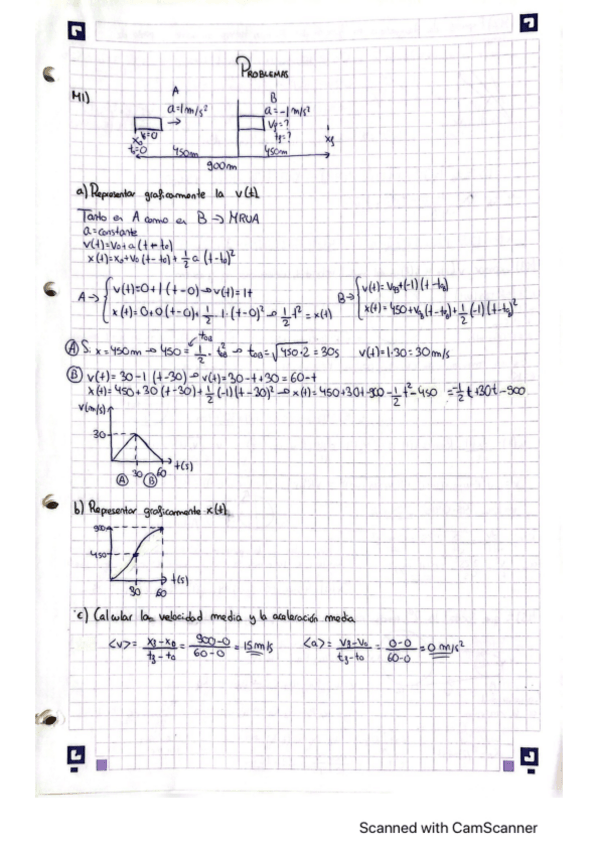 PROBLEMAS
M1)
A
a=1m/s²
v₀=0
x₀
t₀=0
450m
B
a=-1m/s²
vf=?
tf=?
xf
450m
900m
a) Representar graficamente la v(t).
Tanto en A como en B → MRUA
a=constante
v(t)=v₀+a(t-t₀)
x(t)=x₀+v₀(t-t₀)+1/2 a(t-t₀)²
A→ { v(t)=0+1(t-0)→v(t)=1t
x(t)=0+0(t-0)+1/2·1·(t-0)²→1/2t²=x(t)
B→ { v(t)=vB+(-1)(t-tB)
x(t)=450+vB(t-tB)+1/2(-1)(t-tB)²
tOB
Ⓐ S. x=450m→450=1/2·t²OB→tOB=√450·2=30s v(t)=1·30=30m/s
Ⓑ v(t)=30-1(t-30)→v(t)=30-t+30=60-t
x(t)=450+30(t-30)+1/2(-1)(t-30)²→x(t)=450+30t-900-1/2t²-450 =-1/2t+30t-900
v(m/s)
30
30 60 t(s)
Ⓐ Ⓑ
b) Representar graficamente x(t).
900
450
t(s)
30 60
c) Calcular las velocidad media y la aceleración media
<v>=xf-x₀/tf-t₀=900-0/60-0=15m/s <a>=vf-v₀/tf-t₀=0-0/60-0=0m/s²
Scanned with CamScanner